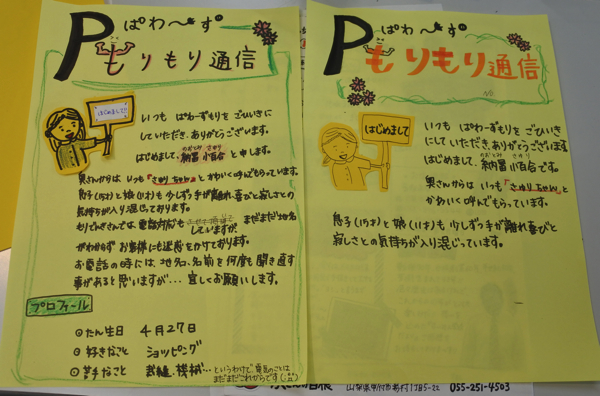 ぱわ〜ず
Pもりもり通信
はじめまして!!
いつも ぱわーずもりを ごひいきに
していただき、ありがとうございます。
はじめまして、納富 小百合 と申します。
奥さんからは いつも『さゆりちゃん』と かわいく呼んでもらっています。
息子(15才)と娘(11才)も少しずつ手が離れ、喜びと寂しさとの
気持ちが入り混じっております。
もりでんきさんでは、電話対応も
していますが、まだまだ地名
がわからず お客様にも迷惑をかけております。
お電話の時には、地名、名前を何度も聞き直す
事があると思いますが・・・ 宜しくお願いします。
プロフィール
◎たん生日 4月27日
◎好きなこと ショッピング
◎苦手なこと 若葉・機械・・・
というわけで電気のことは
まだまだこれからです
ぱわ〜ず
Pもりもり通信
はじめまして
いつも ぱわーずもりを ごひいき
にして いただき、ありがとうございます。
はじめまして、納富 小百合 です。
奥さんからは いつも『さゆりちゃん』と
かわいく呼んでもらっています。
息子(15才)と娘(11才)も少しずつ手が離れ喜びと
寂しさとの気持ちが入り混じっています。
055-251-4503